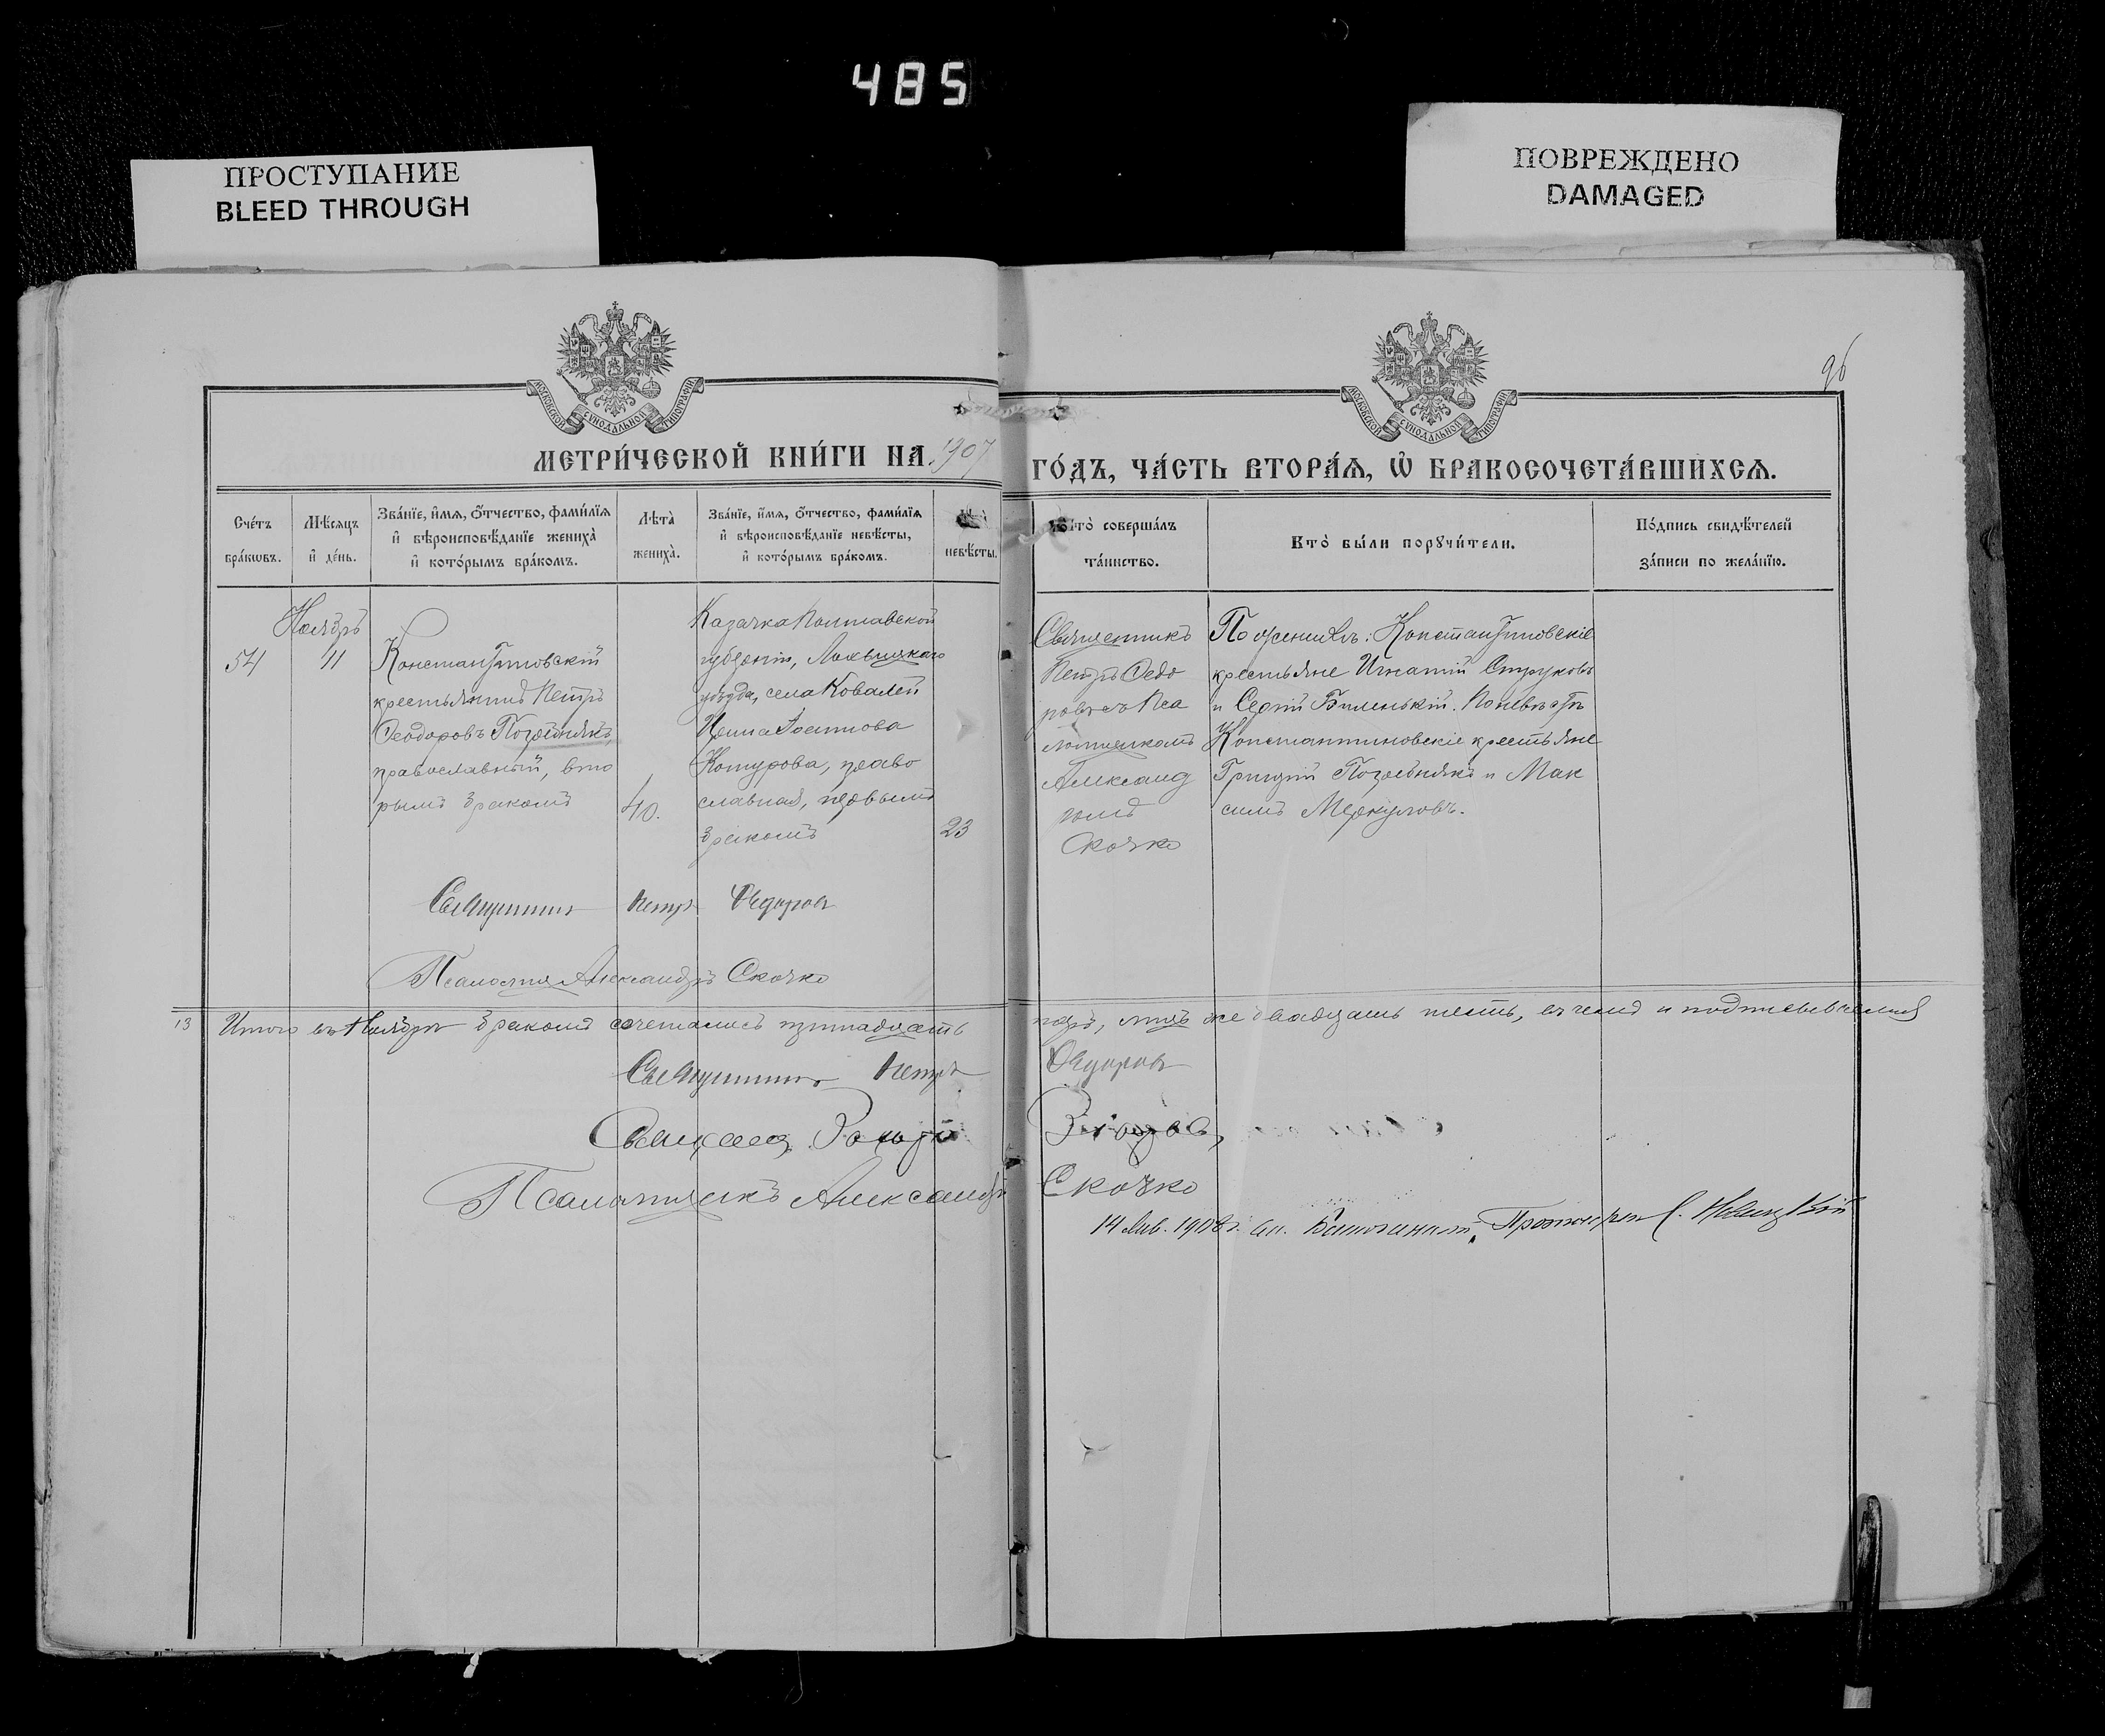 485
ПРОСТУПАНИЕ
BLEED THROUGH
ПОВРЕЖДЕНО
DAMAGED
96
МОСКОВСКОЙ СУНОДАЛЬНОЙ ТИПОГРАФІИ
МОСКОВСКОЙ СУНОДАЛЬНОЙ ТИПОГРАФІИ
МЕТРИ́ЧЕСКОЙ КНИ́ГИ НА 1907
ГО́ДЪ, ЧА́СТЬ ВТОРА́Ѧ, Ѽ БРАКОСОЧЕТА́ВШИХСѦ.
Сче́тъ
бра́кѡвъ.
Мѣ́сѧцъ
и҆ де́нь.
Зва́нїе, и҆́мѧ, ѻ҆́тчество, фами́лїѧ
и҆ вѣроисповѣ́данїе жениха̀
и҆ кото́рымъ бра́комъ.
Лѣ́та̀
жениха̀.
Зва́нїе, и҆́мѧ, ѻ҆́тчество, фами́лїѧ
и҆ вѣроисповѣ́данїе невѣ́сты,
и҆ кото́рымъ бра́комъ.
невѣ́сты.
Кто̀ соверша́лъ
та́инство.
Кто̀ бы́ли порꙋчи́тели.
По́дпись свидѣ́телей
за́писи по жела́нїю.
Ноябрь
54
11
Константиновскій
крестьянинъ Петръ
Ѳеодоровъ Позднякъ,
православный, вто
рымъ бракомъ
40.
Казачка Полтавской
губерніи, Лохвицкаго
уѣзда, села Ковалей
православная, первымъ
бракомъ
23
Священникъ
Петръ Ѳедо
ровъ съ Пса
ломщикомъ
Александ
ромъ
Скочко
По женихѣ: Константиновскіе
крестьяне Игнатій Струковъ
и Сергій Биленькій. По невѣстѣ
Константиновскіе крестьяне
Григорій Позднякъ и Мак
симъ Меркуловъ.
Священникъ Петръ Ѳедоровъ
Псаломщикъ Александръ Скочко
13 Итого въ Ноябрѣ бракомъ сочетались тринадцать
паръ, лицъ же двадцать шесть, въ чемъ и подписываемся
Священникъ Петръ Ѳедоровъ
Священ.
Псаломщикъ Александръ Скочко
14 Янв. 1908 г. Протоіерей